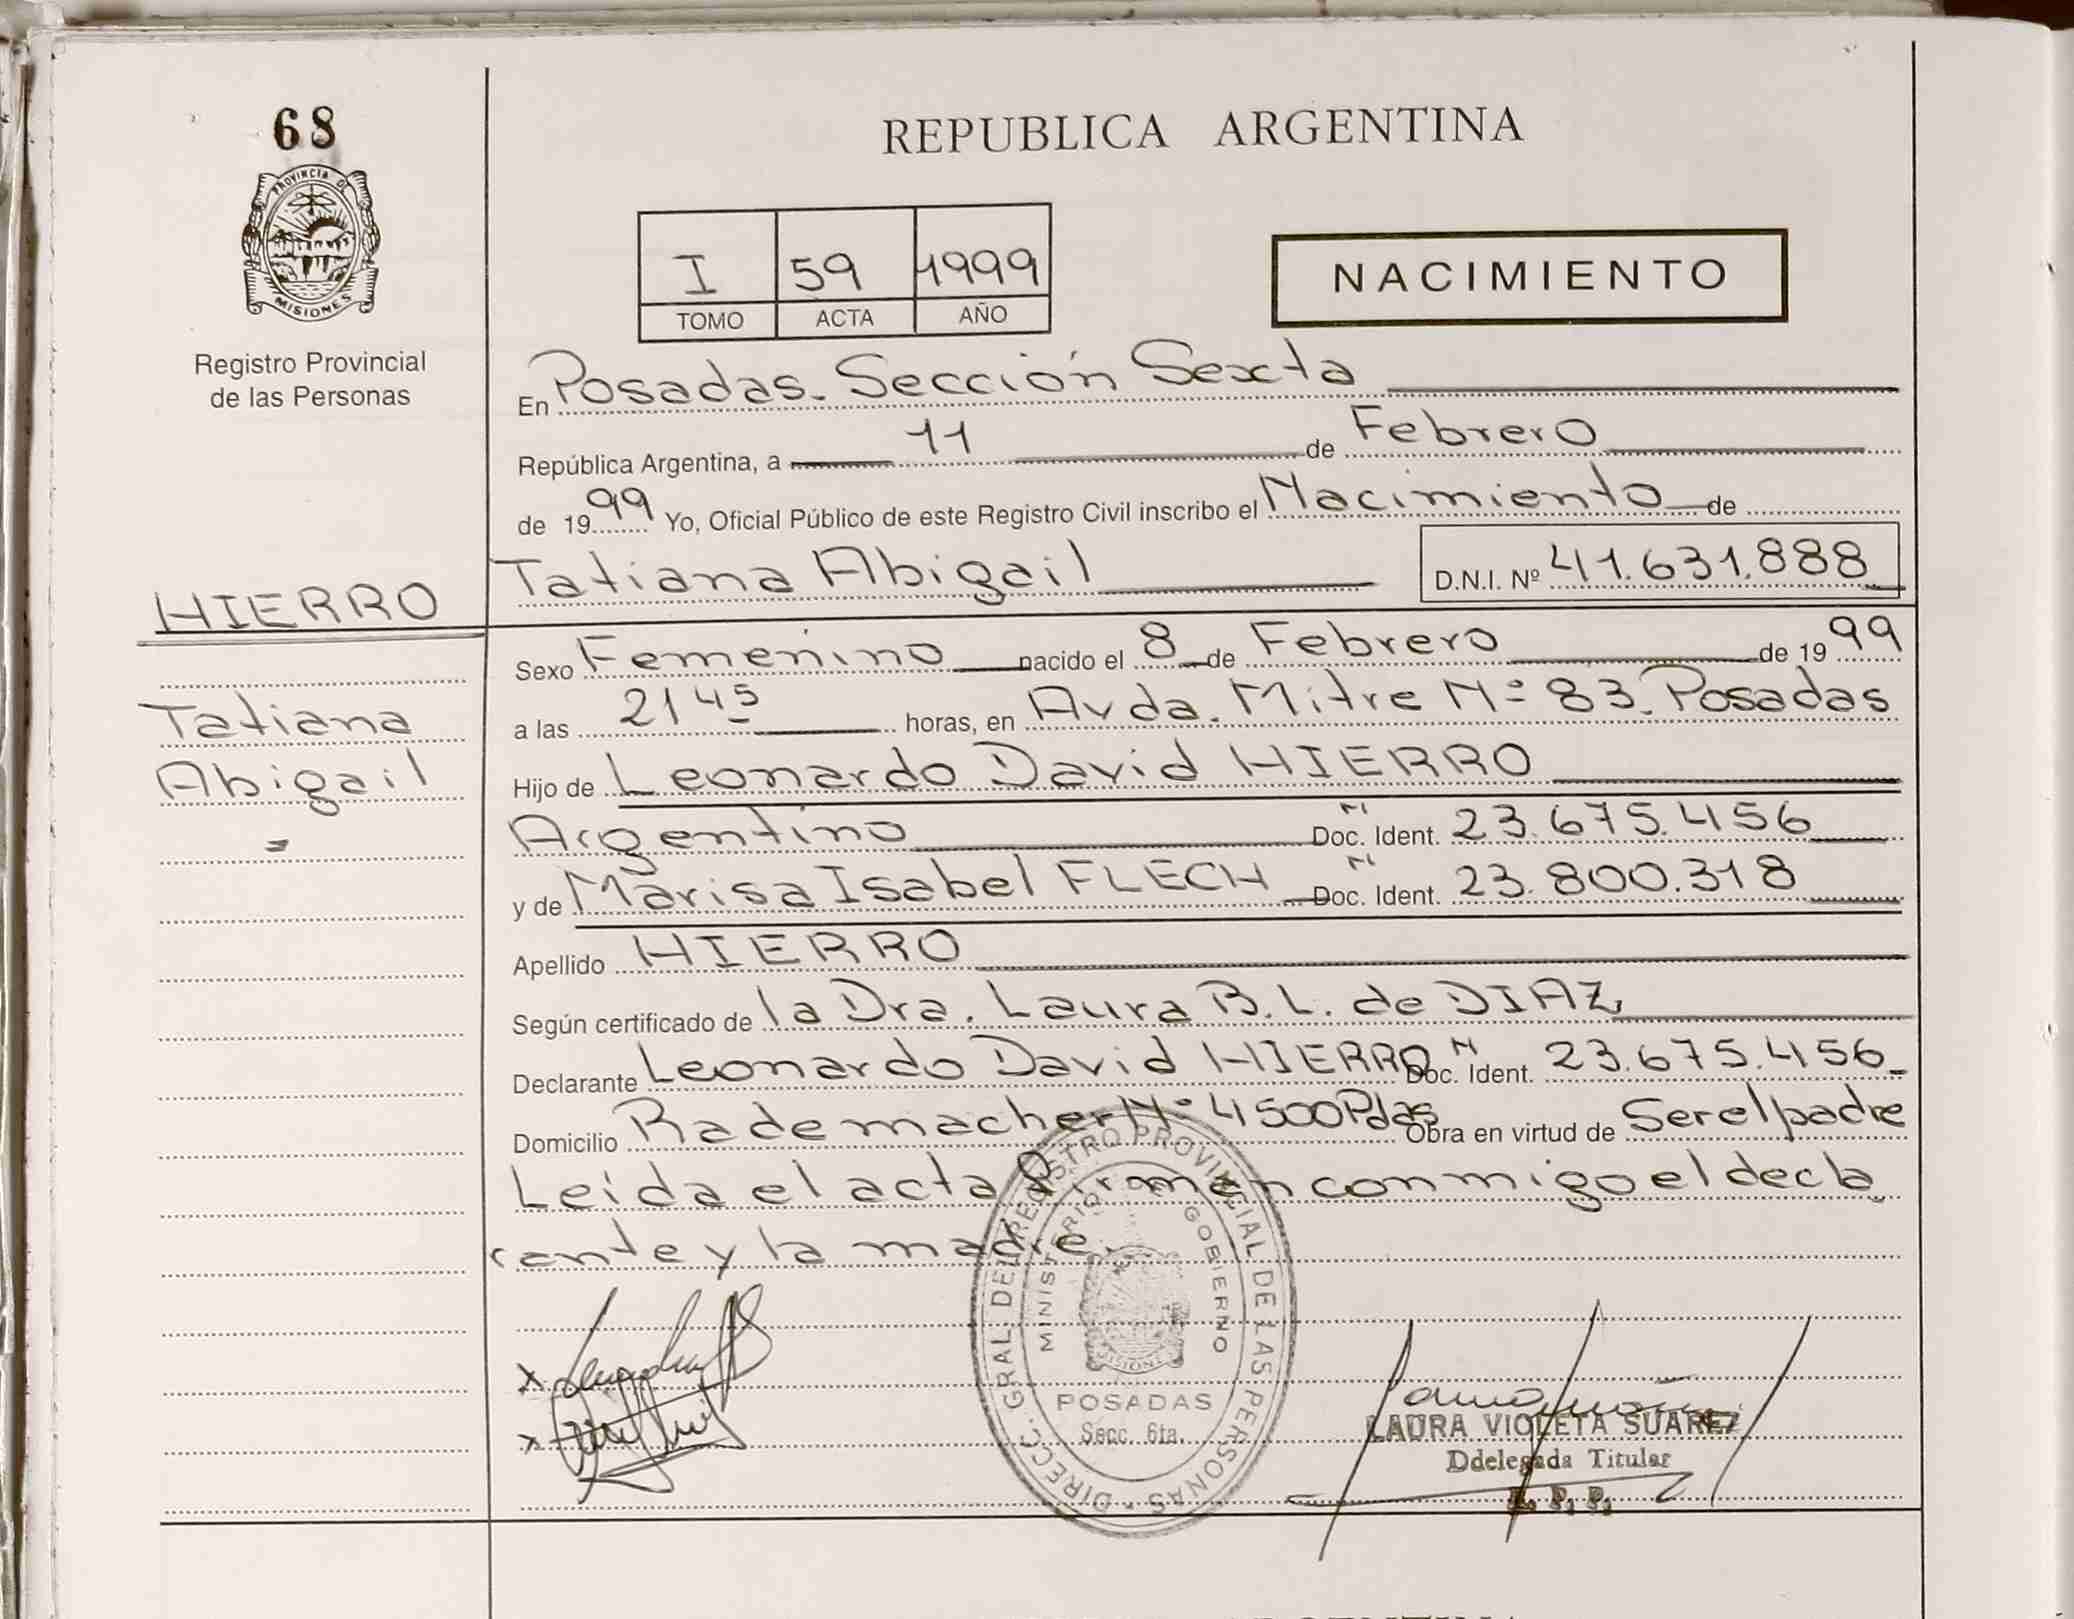 68
PROVINCIA DE
MISIONES
Registro Provincial
de las Personas
REPUBLICA ARGENTINA
I 59 1999
TOMO ACTA AÑO
NACIMIENTO
En Posadas. Sección Sexta
República Argentina, a 11 de Febrero
de 1999 Yo, Oficial Público de este Registro Civil inscribo el Nacimiento de
Tatiana Abigail D.N.I. Nº 41.631.888
HIERRO
Tatiana
Abigail
=
Sexo Femenino nacido el 8 de Febrero de 1999
a las 21 45 horas, en Avda. Mitre Nº 83. Posadas
Hijo de Leonardo David HIERRO
Argentino Doc. Ident. 23.675.456
y de Marisa Isabel FLECH Doc. Ident. 23.800.318
Apellido HIERRO
Según certificado de la Dra. Laura B. L. de DIAZ
Declarante Leonardo David HIERRO Doc. Ident. 23.675.456
Domicilio Rademacher Nº 4500 Pdas Obra en virtud de Ser el padre
Leída el acta firman conmigo el decla
rante y la madre.
DIRECC. GRAL. DEL REGISTRO PROVINCIAL DE LAS PERSONAS
MINISTERIO GOBIERNO
MISIONES
POSADAS
Secc. 6ta.
LAURA VIOLETA SUAREZ
Ddelegada Titular
R. P. P.